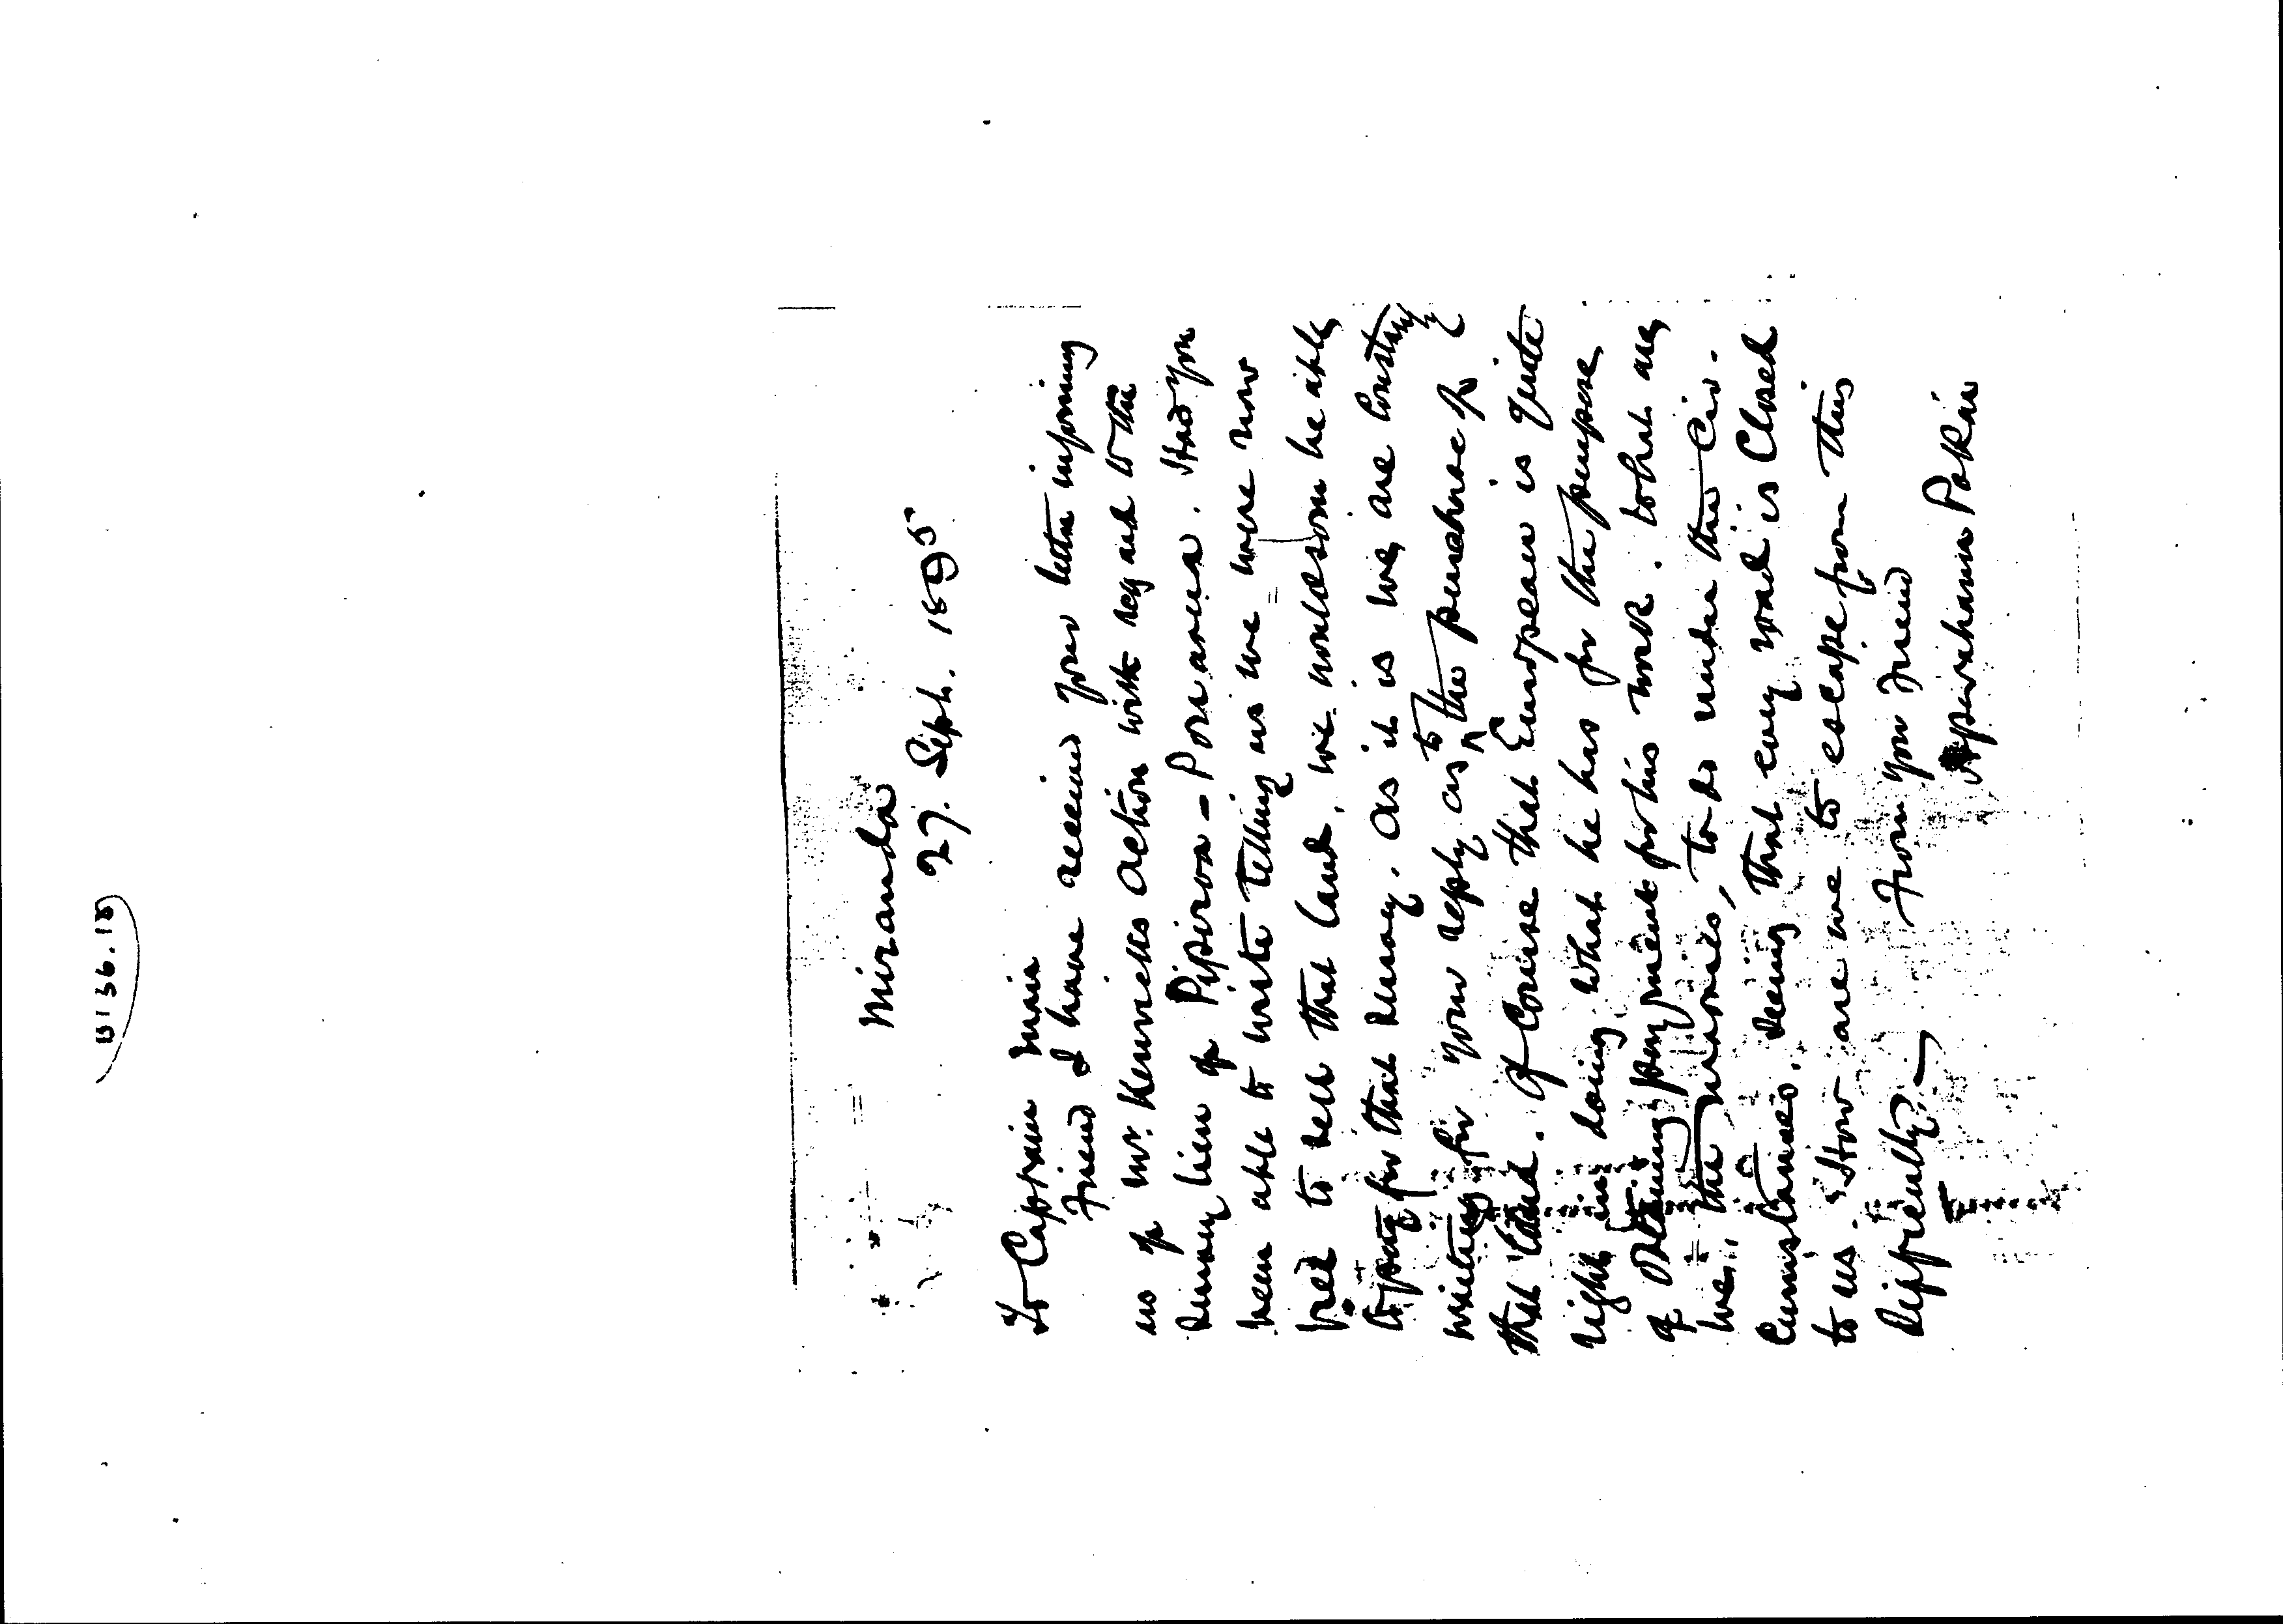 Miranda
27. Sept. 1895
To Captain Mair
Friend I have received your letter informing
us of Mr. Kenricks action with regard to the
survey lien of Pipiroa - Pouarua. Had you
been able to write telling us we were now
free to sell that land, we would soon be able
to pay for that survey. As it is we are constantly
waiting for your reply as to the purchase of
that land. Of course that European is quite
right in doing what he has for the purpose
of obtaining payment for his work. What are
we, the maories, to do under the Cir-
cumstances, seeing that every road is Closed
to us. How are we to escape from this
difficulty.
From your friend
Aperahama Pokai